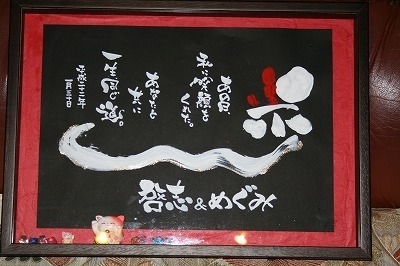 あの日、
私に笑顔を
くれた。
あなたと
共に
一生同じ道。
平成二十二年
一月三日
啓志&めぐみ